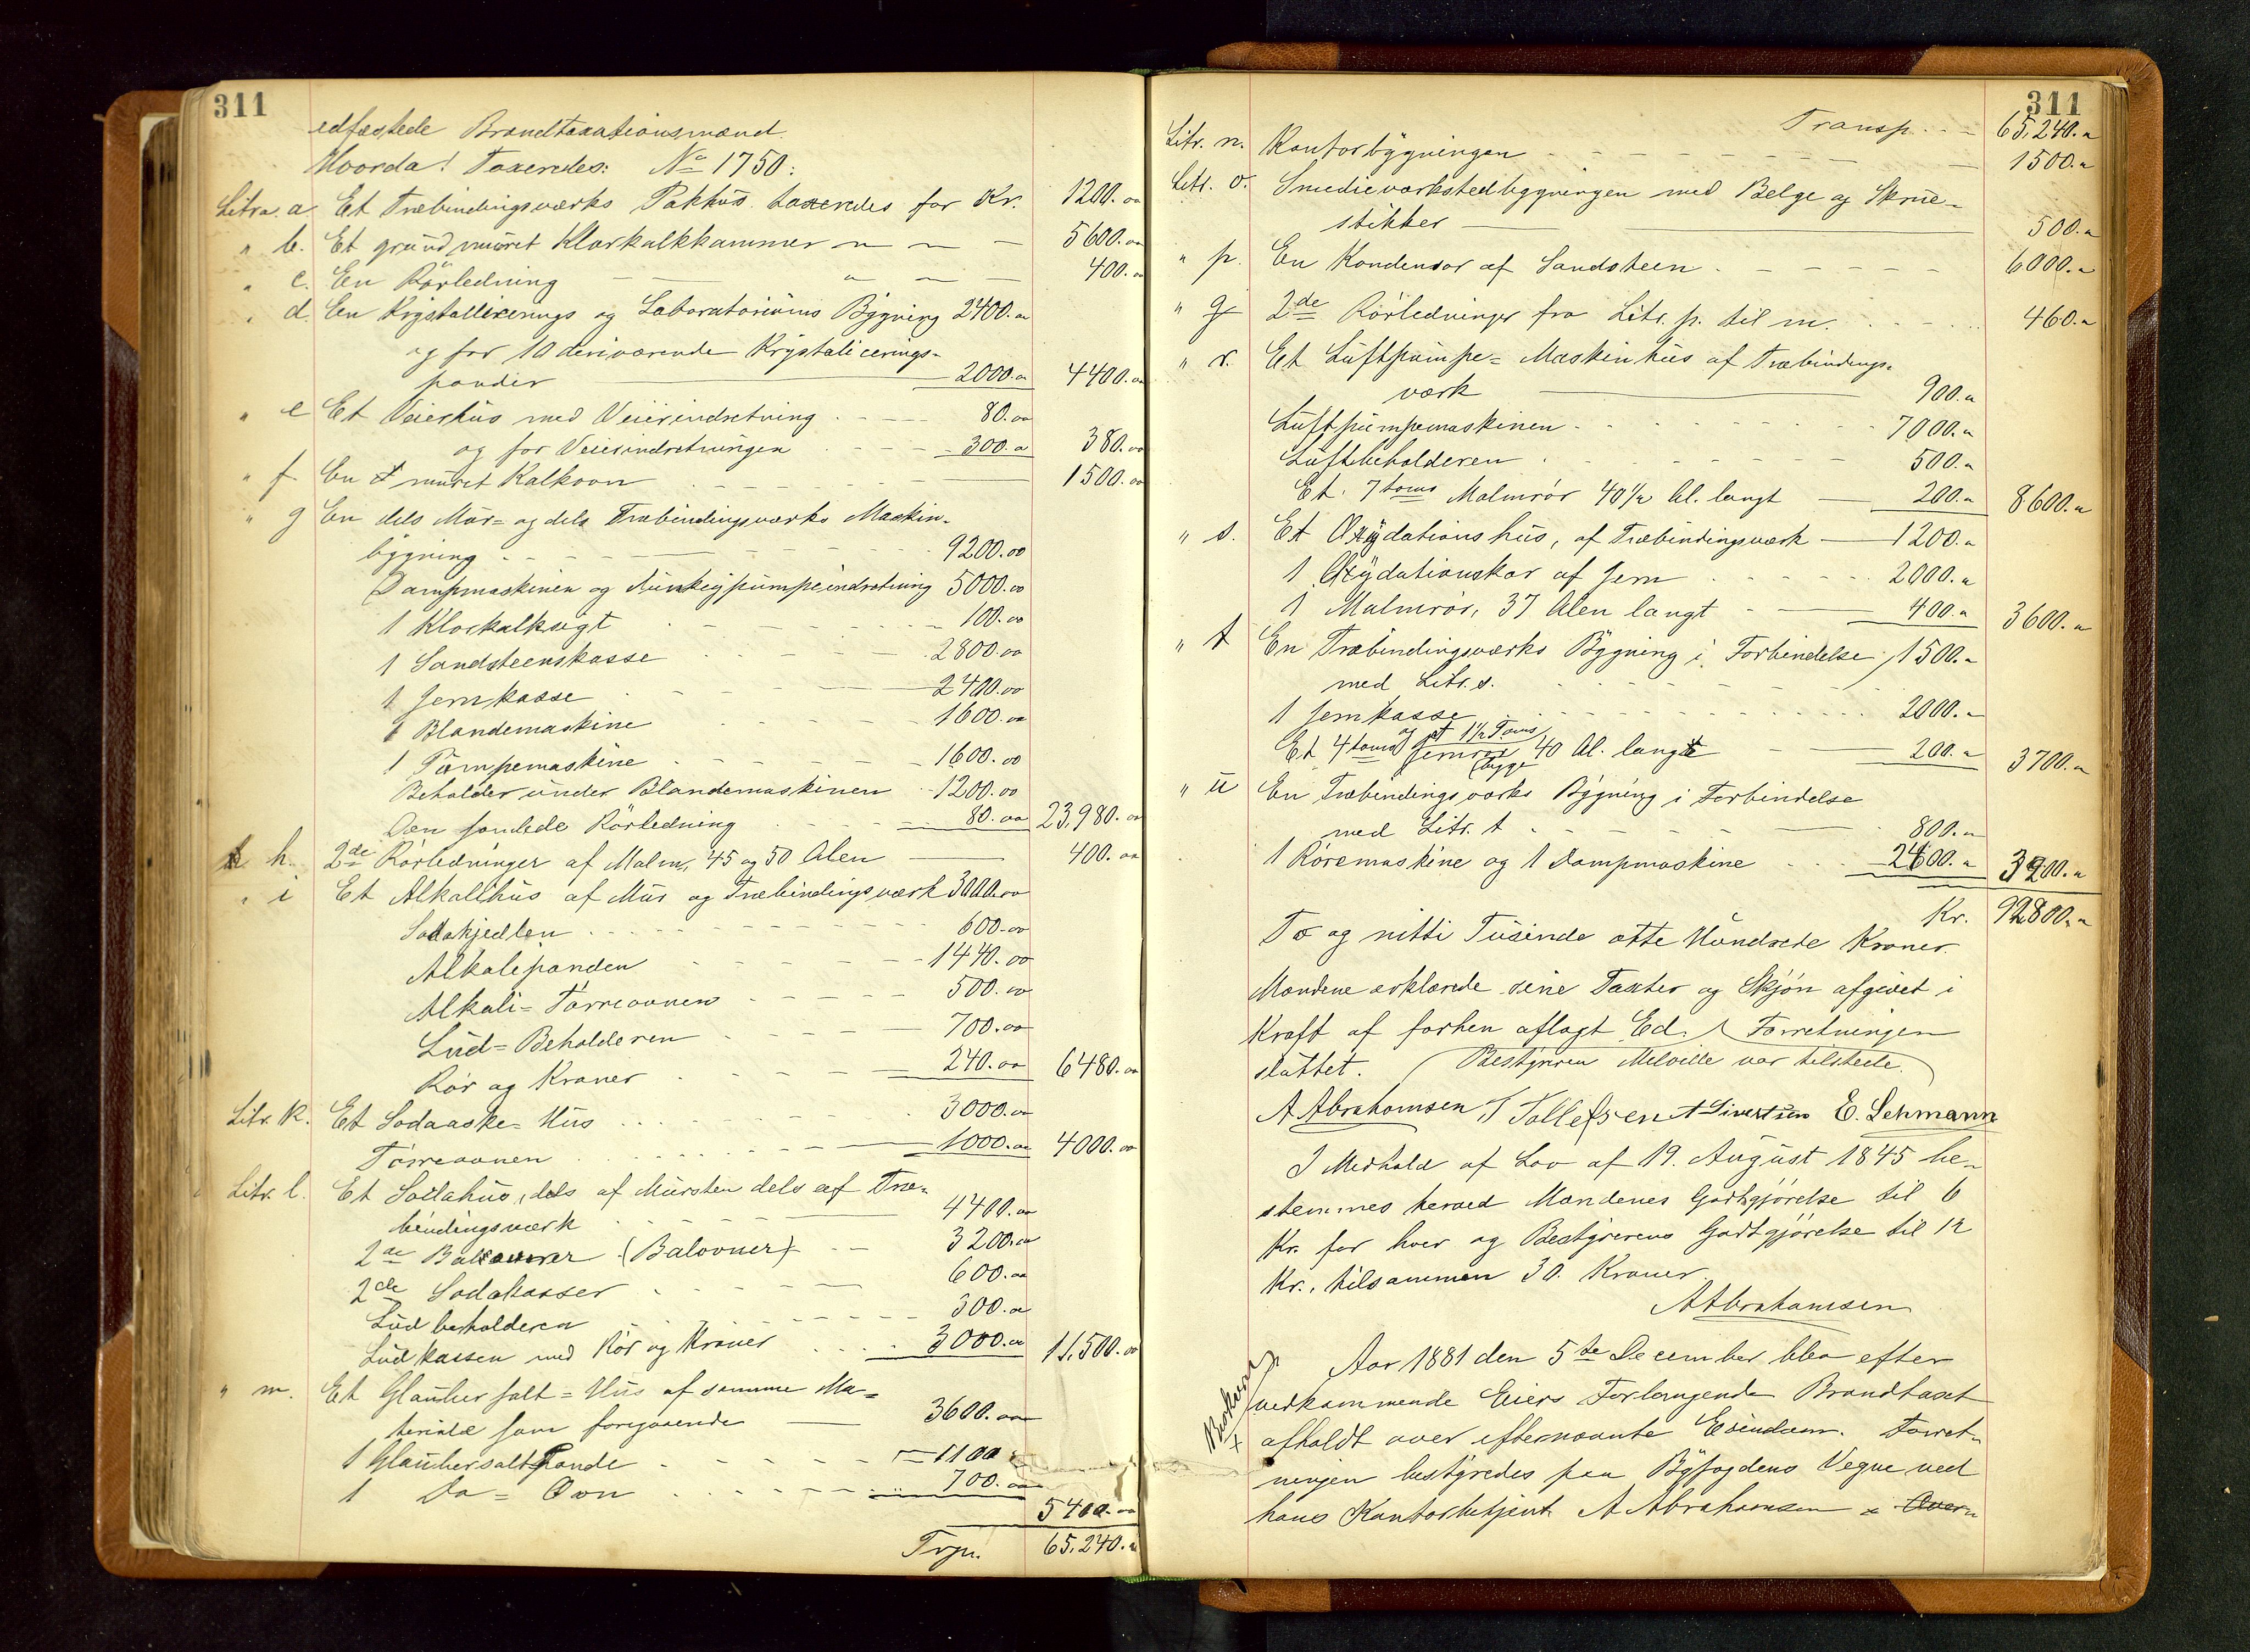 311
edfæstede Brandtaxationsmænd.
Hvorda! Taxeredes: No 1750:
Litra. a Et Træbindingsværks Pakhus taxeredes for Kr. 1200.00
" b. Et grundmuret Klorkalkkammer " — — 5600.00
" c. En Rörledning — " — — 400.00
" d. En Krystallicerings og Laboratoriums Bygning 2400.00
og for 10 deriværende Krystalicerings-
pander — 2000.00 4400.00
" e Et Veierhus med Veierindretning 80.00
og for Veierindretningen 300.00 380.00
" f. En muret Kalkovn 1500.00
" g En dels Mur= og dels Træbindingsværks Maskin-
bygning 9200.00
Dampmaskinen og Dunkeypumpeindretning 5000.00
1 Klorkalksigt 100.00
1 Sandsteenskasse 2800.00
1 Jernkasse 2400.00
1 Blandemaskine 1600.00
1 Pumpemaskine 1600.00
Beholder under Blandemaskinen 1200.00
Den samlede Rörledning 80.00 23,980.00
h. 2de Rörledninger af Malm, 45 og 50 Alen 400.00
" i Et Alkalihus af Mur og Træbindingsværk 3000.00
Sodakjedlen 600.00
Alkalipanden 1440.00
Alkali=Törreovnen 500.00
Lud=Beholderen 700.00
Rör og Kraner 240.00 6480.00
Litr. k. Et Sodaaske=Hus 3000.00
Törreovnen 1000.00 4000.00
Litr. l. Et Sodahus, dels af Mursten dels af Træ-
bindingsværk 4400.00
2de (Balovner) 3200.00
2de Sodakasser 600.00
Ludbeholderen 300.00
Ludkassen med Rör og Kraner 3000.00 11,500.00
" m. Et Glaubersalt=Hus af samme Ma=
teriale som foregaaende — 3600.00
1 Glaubersaltpande 1100
1 Do = Ovn 700.00
5400.00
Trp. 65,240.00
311
Transp. 65,240.00
Litr. n. Kontorbygningen 1500.00
Litr. o. Smedieværkstedbygningen med Belge og Skrue-
stikker — 500.00
" p. En Kondensor af Sandsteen 6000.00
" q 2de Rörledninger fra Litr. p. til m. 460.00
" r. Et Luftpumpe=Maskinhus af Træbindings-
værk 900.00
Luftpumpemaskinen 7000.00
Luftbeholderen 500.00
Et 7 toms Malmrör 40½ Al. langt — 200.00 8600.00
" s. Et Oxydationshus, af Træbindingsværk — 1200.00
1 Oxydationskar af Jern 2000.00
1 Malmrör, 37 Alen langt — 400.00 3600.00
" t En Træbindingsværks Bygning i Forbindelse 1500.00
med Litr. s.
1 Jernkasse 2000.00
og et 1½ Toms
Et 4 toms Jernrör 40 Al. langt 200.00 3700.00
begge
" u En Træbindingsværks Bygning i Forbindelse
med Litr. t 800.00
1 Röremaskine og 1 Dampmaskine 2400.00 3200.00
Kr. 92800.00
To og nitti Tusinde otte Hundrede Kroner.
Mændene erklærede sine Taxter og Skjön afgivet i
Kraft af forhen aflagt Ed. Forretningen
sluttet. (Bestyreren Melville var tilstede.)
A Abrahamsen T Tollefsen A Sivertsen E. Lehmann
I Medhold af Lov af 19. August 1845 be-
stemmes herved Mændenes Godtgjörelse til 6
Kr. for hver og Bestyrerens Godtgjörelse til 12
Kr., tilsammen 30. Kroner.
A Abrahamsen
Aar 1881 den 5te December blev efter
vedkommende Eiers Forlangende Brandtaxt
afholdt over eftern​ævnte Eiendom. Forret-
ningen bestyredes paa Byfogdens Vegne ved
hans Kontorbetjent A Abrahamsen